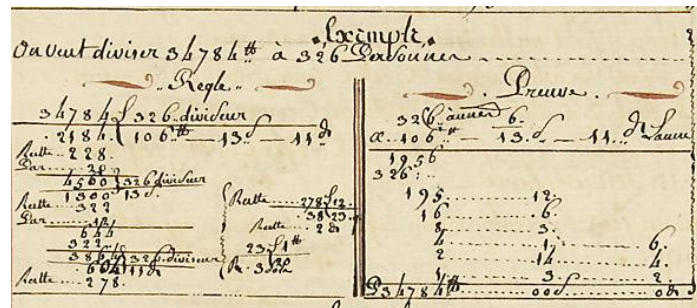 Exemple
On veut diviser 34784₶ à 326 Personnes
Regle
34784 { 326 diviseur
2184 ( 106₶ — 13s — 11d
Reste 228.
Par 20
4560 } 326 diviseur
1300 } 13s
Reste 322
Par 12
644
322
3864 } 326 diviseur
604 } 11d
Reste 278.
Reste 278 { 12
38 { 23
Reste 2d
23 { 1₶
R. 3 sols
Preuve
326 aunes 6.
a 106₶ 13s 11d L'aune
1956
326
195 12
16 6
8 3
4 17 6
2 14 4
1 3 2
P 34784₶ 00s 00d